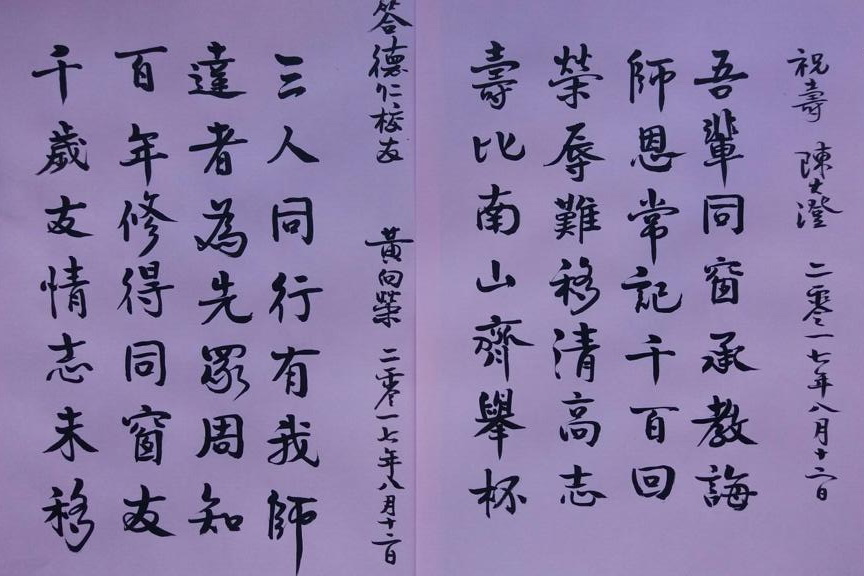 祝壽 陳大澄 二零一七年八月十二日
吾輩同窗承教誨
師恩常記千百回
榮辱難移清高志
壽比南山齊舉杯
答德仁校友 黃向榮 二零一七年八月十二日
三人同行有我師
達者為先眾周知
百年修得同窗友
千歲友情志未移